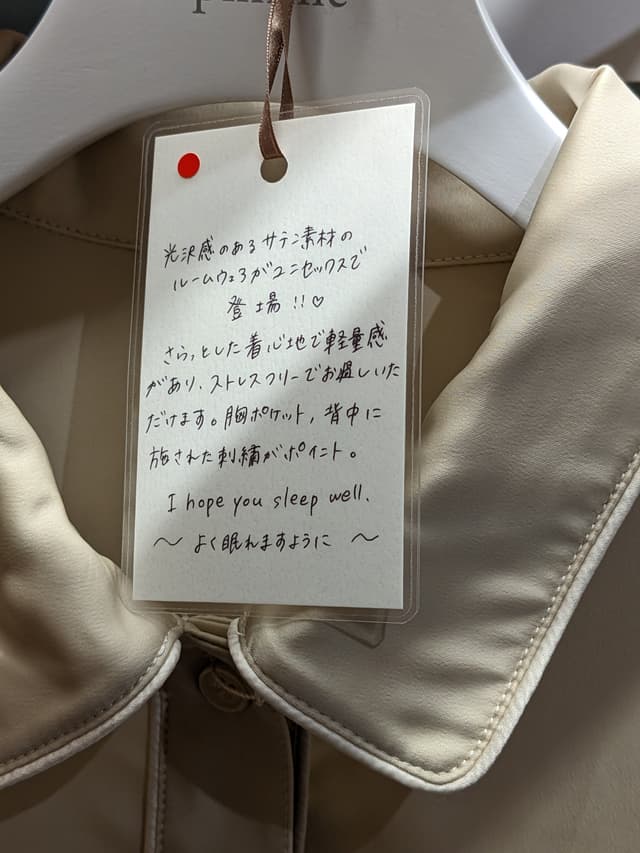 光沢感のあるサテン素材の
ルームウェアがユニセックスで
登場!!♡
さらっとした着心地で軽量感
があり、ストレスフリーでお過しいた
だけます。胸ポケット、背中に
施された刺繍がポイント。
I hope you sleep well.
〜 よく眠れますように 〜